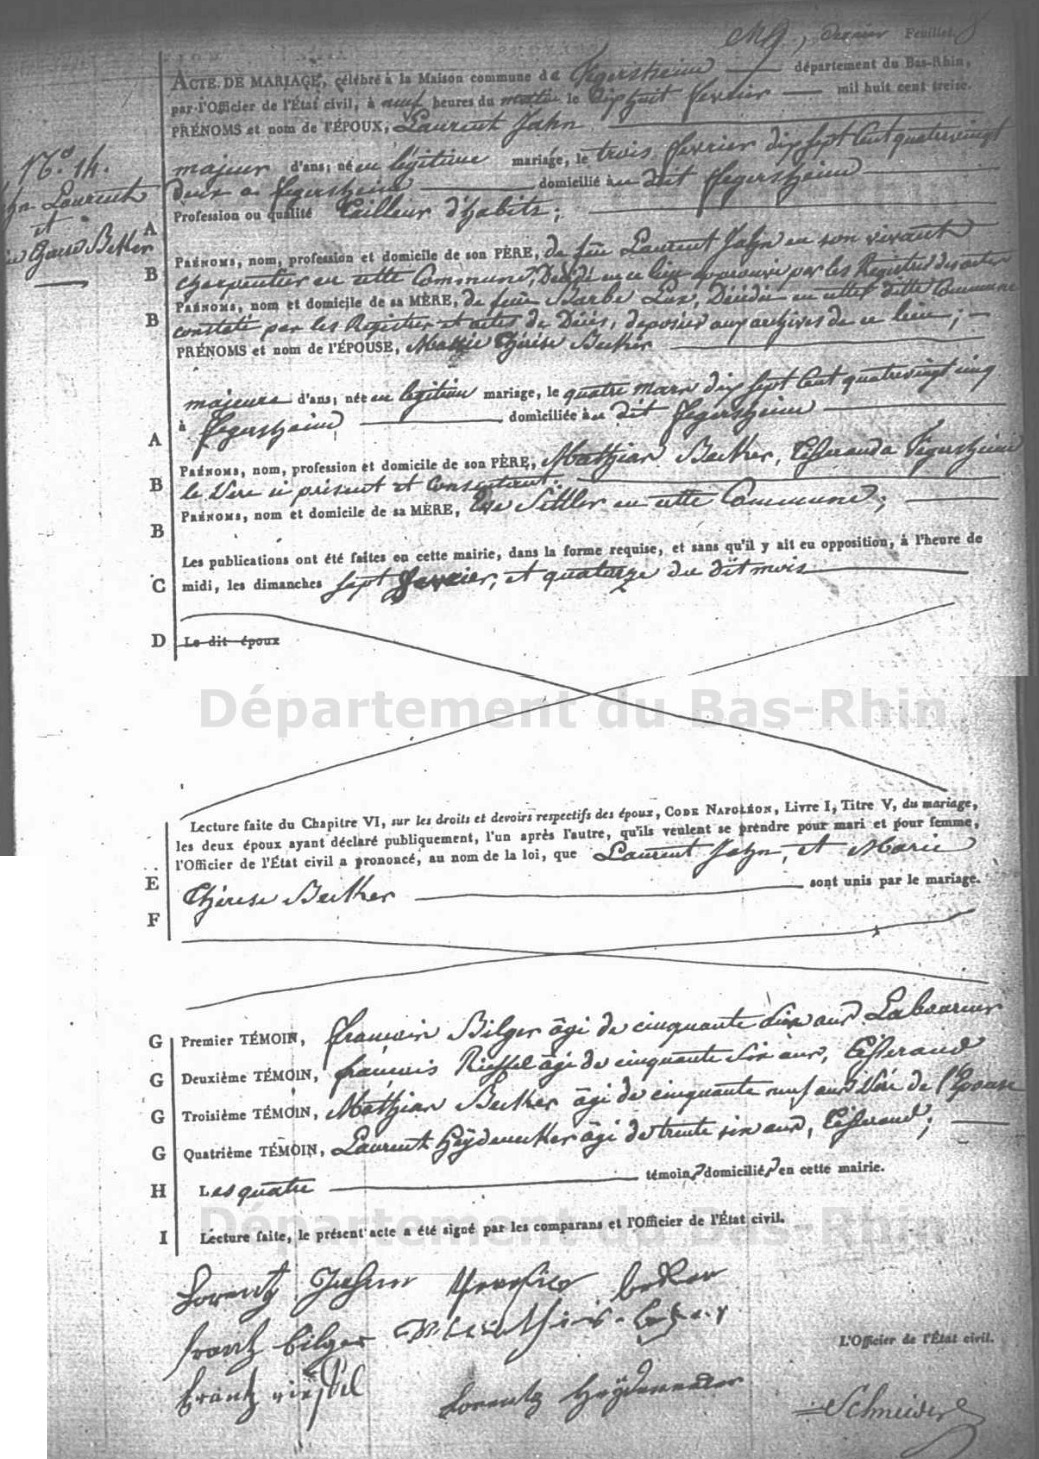 dernier Feuillet
ACTE DE MARIAGE, célébré à la Maison commune de Fegersheim département du Bas-Rhin,
par l'Officier de l'État civil, à neuf heures du matin le dix huit fevrier mil huit cent treize.
PRÉNOMS et nom de l'ÉPOUX, Laurent Jahn
N.º 14.
majeur d'ans; né en légitime mariage, le trois fevrier dix sept Cent quatrevingt
Laurent
deux à fegersheim domicilié au dit fegersheim
et
Profession ou qualité Tailleur d'habits;
A
Therese Betker
PRÉNOMS, nom, profession et domicile de son PÈRE, de feu Laurent Jahn en son vivant
B
charpentier en cette Commune, Décédé en ce lieu approuvé par les Registres des actes
PRÉNOMS, nom et domicile de sa MÈRE, de feue Barbe Lux, Décédée en cette dite Commune
B
constaté par les Registres et actes de Décès, deposées aux archives de ce lieu;
PRÉNOMS et nom de l'ÉPOUSE, Marie Thérèse Betker
majeure d'ans; née en légitime mariage, le quatre mars dix sept Cent quatrevingt cinq
à fegersheim domiciliée au dit fegersheim
A
PRÉNOMS, nom, profession et domicile de son PÈRE, Mathias Betker, Tisserand a Fegersheim
B
le Père ci présent et Consentant.
PRÉNOMS, nom et domicile de sa MÈRE, Eve Sittler en cette Commune;
B
Les publications ont été faites en cette mairie, dans la forme requise, et sans qu'il y ait eu opposition, à l'heure de
C midi, les dimanches sept fevrier, et quatorze du dit mois
D Le dit époux
Département du Bas-Rhin
Lecture faite du Chapitre VI, sur les droits et devoirs respectifs des époux, CODE NAPOLÉON, Livre I, Titre V, du mariage,
les deux époux ayant déclaré publiquement, l'un après l'autre, qu'ils veulent se prendre pour mari et pour femme,
l'Officier de l'État civil a prononcé, au nom de la loi, que Laurent Jahn, et Marie
E Thérèse Betker sont unis par le mariage.
F
G Premier TÉMOIN, françois Bilger âgé de cinquante dix ans Laboureur
G Deuxième TÉMOIN, françois Rieffel âgé de cinquante six ans, Tisserand
G Troisième TÉMOIN, Mathias Betker âgé de cinquante neuf ans Père de l'Epouse
G Quatrième TÉMOIN, Laurent Heÿdmecker âgé de trente six ans, Tisserand;
H Les quatre témoins domiciliés en cette mairie.
Département du Bas-Rhin
I Lecture faite, le présent acte a été signé par les comparans et l'Officier de l'État civil.
Lorentz
frantz bilger
L'Officier de l'État civil.
frantz
Lorentz
Schneider